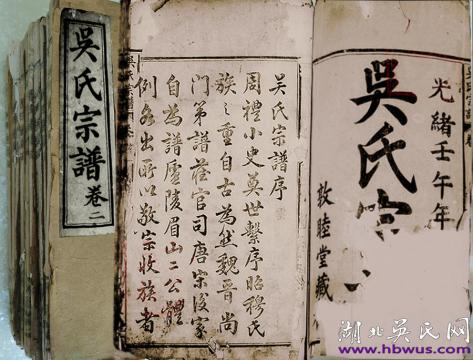 吳氏宗譜 卷二
吳氏宗譜序
周禮小史奠世繫序昭穆氏
族之重自古為然魏晉尚
門第譜蔭官司唐宋後家
自為譜廬陵眉山二公體
例出所以敬宗收族者
吳氏宗譜
光緒壬午年
吳氏宗
敦睦堂藏
湖北吴氏网
www.hbwus.com